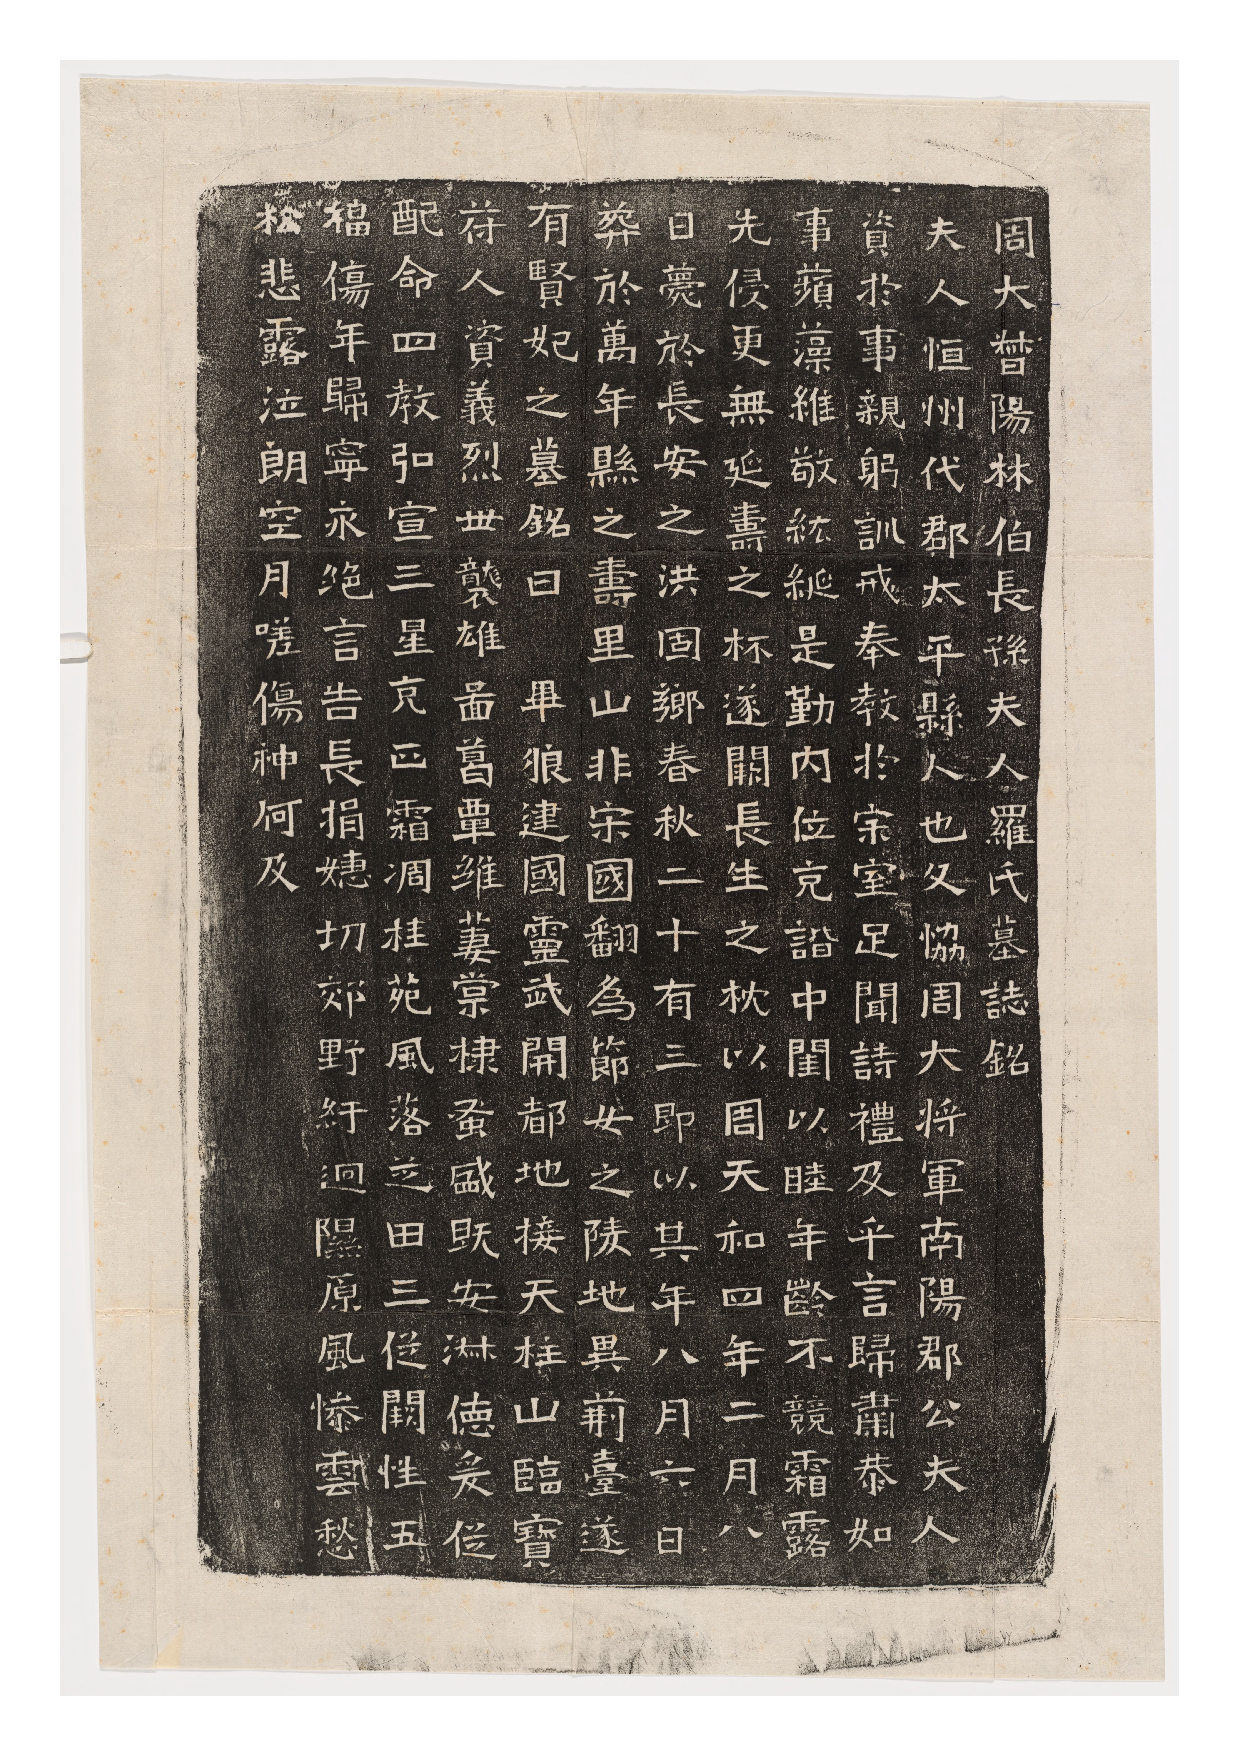 周大督陽林伯長孫夫人羅氏墓誌銘
夫人恒州代郡太平縣人也父協周大將軍南陽郡公夫人
資於事親躬訓戒奉教於宗室足聞詩禮及乎言歸肅恭如
事蘋藻維敬紘綖是勤內位克諧中閨以睦年齡不競霜露
先侵更無延壽之杯遂闕長生之枕以周天和四年二月八
日薨於長安之洪固鄉春秋二十有三即以其年八月六日
葬於萬年縣之壽里山非宗國翻為節女之陵地異荊臺遂
有賢妃之墓銘曰　畢狼建國靈武開都地接天柱山臨寶
符人資義烈世襲雄啚葛覃維萋棠棣矞盛既安淋德爰從
配命四教弘宣三星克正霜凋桂苑風落芝田三從闕性五
福傷年歸寧永絕言告長捐悽切郊野紆迴隰原風慘雲愁
松悲露泣朗空月嗟傷神何及